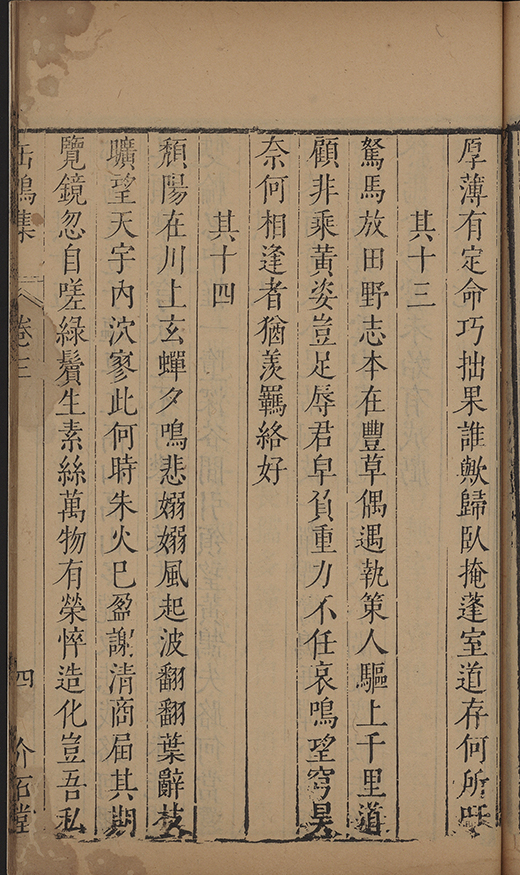 厚薄有定命巧拙果誰歟歸臥掩蓬室道存何所吁
其十三
駑馬放田野志本在豐草偶遇執策人驅上千里道
顧非乘黃姿豈足辱君皁負重力不任哀鳴望穹昊
奈何相逢者猶羨羈絡好
其十四
頹陽在川上玄蟬夕鳴悲嫋嫋風起波翻翻葉辭枝
曠望天宇內泬寥此何時朱火已盈謝清商屆其期
覽鏡忽自嗟綠鬢生素絲萬物有榮悴造化豈吾私
鳴集
卷三
四
介石堂